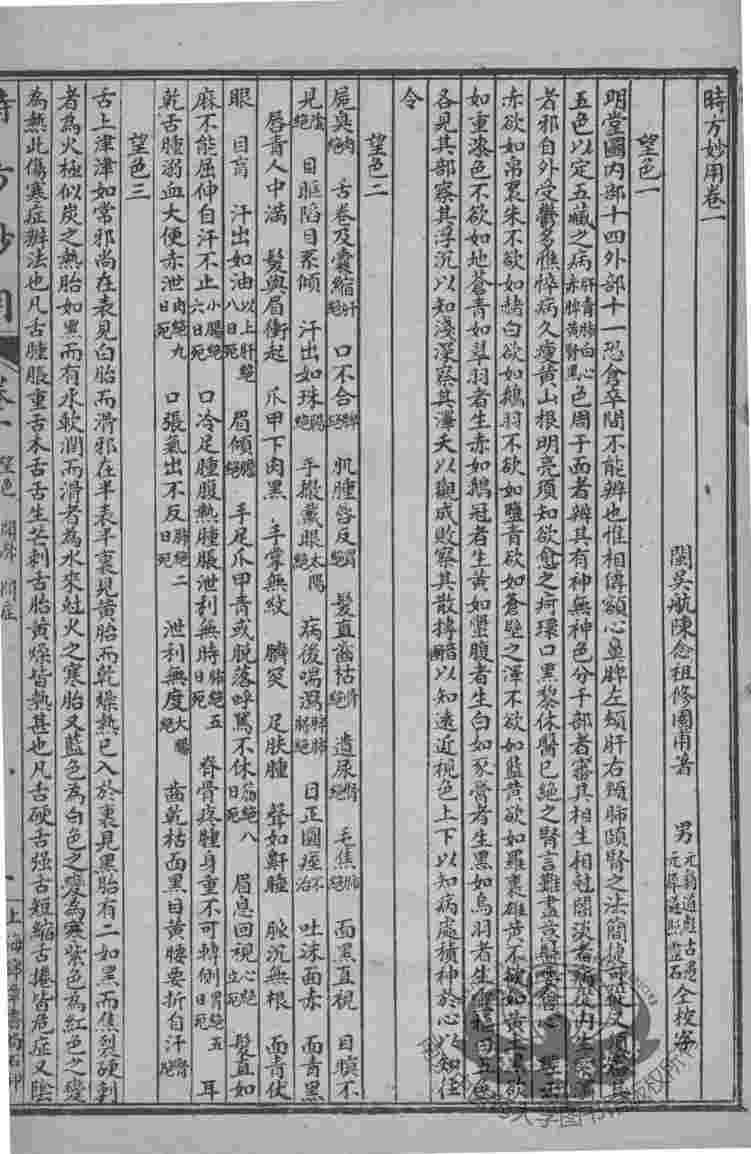 時方妙用卷一
閩吳航陳念祖修園甫著 男 元豹道彪古愚 元犀道照靈石 仝校字
望色一
明堂圖內部十四外部十一恐倉卒間不能辨也惟相傳額心鼻脾左頰肝右頰肺頤腎之法簡捷可
五色以定五藏之病肝青肺白心赤脾黃腎黑色周于面者辨其有神無神色分于部者審其相生相尅闇淡者病從內生
者邪自外受鬱多憔悴病久瘦黃山根明亮須知欲愈之疴環口黑黎休醫已絕之腎言難盡
赤欲如帛裹朱不欲如赭白欲如鵝羽不欲如鹽青欲如蒼璧之澤不欲如藍黃欲如羅裹雄黃不欲如黃土黑欲
如重漆色不欲如地蒼青如翠羽者生赤如鷄冠者生黃如蟹腹者生白如豕膏者生黑如烏羽者生
各見其部察其浮沉以知淺深察其澤夭以觀成敗察其散摶以知遠近視色上下以知病處積神於心以知往
令
望色二
屍臭肉絕 舌卷及囊縮肝絕 口不合脾絕 肌腫唇反胃絕 髮直齒枯骨絕 遺尿腎絕 毛焦肺絕 面黑直視 目瞑不
見陰絕 目眶陷目系傾 汗出如珠陽絕 手撒戴眼太陽絕 病後喘瀉脾肺絕 目正圓痙不治 吐沫面赤 面青黑
唇青人中滿 髮與眉衝起 爪甲下肉黑 手掌無紋 臍突 足趺腫 聲如鼾睡 脉沉無根 面青伏
眼 目盲 汗出如油以上肝絕八日死 眉傾膽絕 手足爪甲青或脫落呼罵不休筋絕八日死 眉息回視心絕立死 髮直如
麻不能屈伸自汗不止小腸絕六日死 口冷足腫腹熱臚脹泄利無時脾絕五日死 脊骨疼腫身重不可轉側胃絕五日死 耳
乾舌腫溺血大便赤泄肉絕九日死 口張氣出不反肺絕二日死 泄利無度大腸絕 齒乾枯面黑目黃腰要折自汗腎絕
望色三
舌上津津如常邪尚在表見白胎而滑邪在半表半裏見黃胎而乾燥熱已入於裏見黑胎有二如黑而焦裂硬刺
者為火極似炭之熱胎如黑而有水軟潤而滑者為水來尅火之寒胎又藍色為白色之變為寒紫色為紅色之變
為熱此傷寒症辨法也凡舌腫脹重舌木舌舌生芒刺舌胎黃燥皆熱甚也凡舌硬舌强舌短縮舌捲皆危症又陰
時方妙用 卷一 望色 聞聲 問症